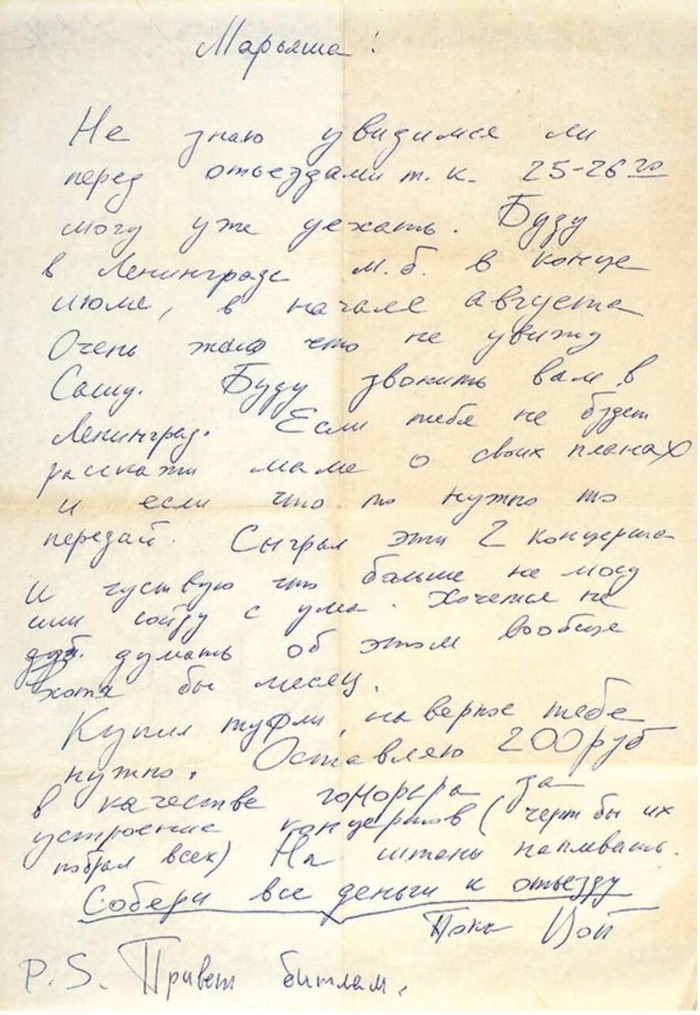 Марьяша!
Не знаю увидимся ли
перед отъездами т.к. 25-26го
могу уже уехать. Буду
в Ленинграде м.б. в конце
июле, в начале августа
Очень жаль что не увижу
Сашу. Буду звонить вам в
Ленинград. Если тебя не будет
расскажи маме о своих планах
и если что то нужно то
передай. Сыграл эти 2 концерта
и чуствую что больше не могу
или сойду с ума. Хочется не
думать об этом вообще
хотя бы месяц.
Купил туфли, наверное тебе
нужно. Оставляю 200 руб
в качестве гонорара за
устроение концертов (черт бы их
побрал всех) На штаны наплевать.
Собери все деньги к отъезду
Пока Цой
P.S. Привет битлам.